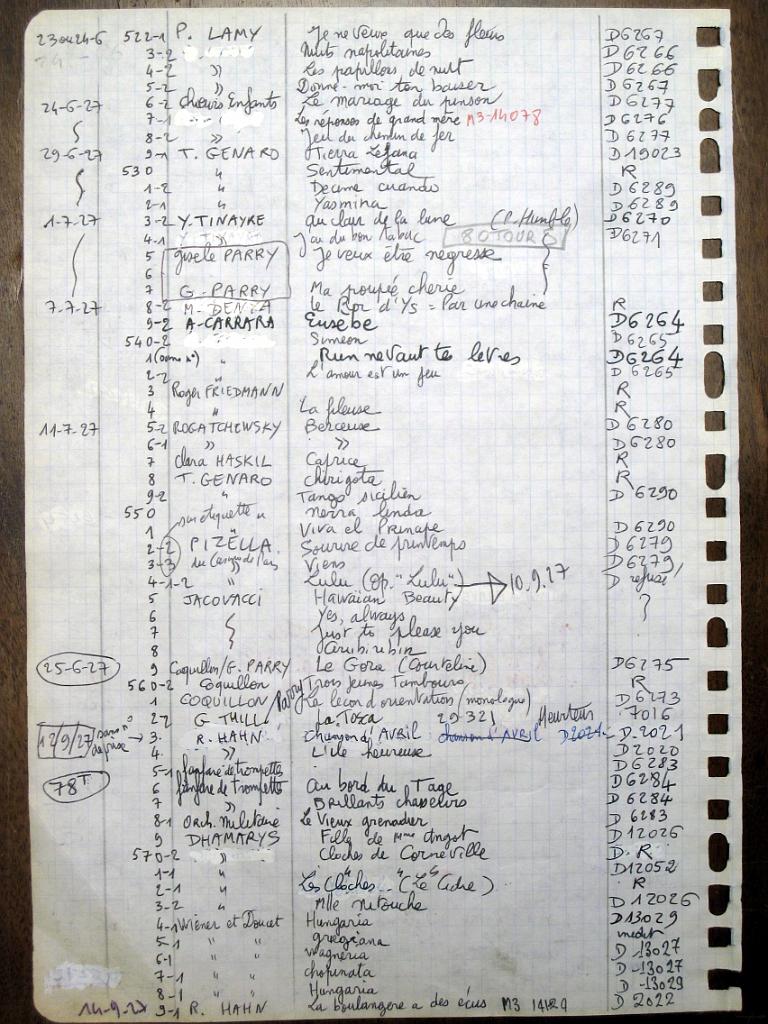 23 ou 24-6 522-1 P. LAMY Je ne veux que des fleurs D6267
3-2 Nuits napolitaines D6266
4-2 " Les papillons de nuit D6266
5-2 " Donne-moi ton baiser D6267
24-6-27 6-2 Choeurs Enfants Le mariage du pinson D6277
7-1 Les réponses de grand mère M3-14078 D6276
8-2 " Jeu du chemin de fer D6277
29-6-27 9-1 T. GENARO Tierra D19023
530 " Sentimental R
1-2 " Decime cuando D6289
2-1 " Yasmina D6289
1-7-27 3-2 Y. TINAYRE au clair de la lune (P. Humblo) D6270
4-1 J'ai du bon tabac D6271
5 gisele PARRY Je veux être negresse
6
7 G. PARRY Ma poupée cherie
7-7-27 8-2 M. DENZA Le Roi d'Ys = Par une chaine R
9-2 A. CARRARA Eusebe D6264
540-2 Simeon D6265
1 " Rien ne vaut tes levres D6264
2-2 L'amour est un jeu D6265
3 Roger FRIEDMANN R
4 " La fileuse R
11-7-27 5-2 ROGATCHEWSKY Berceuse D6280
6-1 " " D6280
7 Clara HASKIL Caprice R
8 T. GENARO chirigota R
9-2 " Tango sicilien D 6290
550 nerra linda
1 sur étiquette Viva el Principe D6290
2-2 PIZELLA Sourire de printemps D6279
3-3 du Casino de Viens D6279
4-1-2 " Lulu (Op. "Lulu") → 10.9.27 D refusé
5 JACOVACCI Hawaïan Beauty ?
6 Yes, always
7 Just to please you
8 Ciribiribin
25-6-27 9 Coquillon/G. PARRY Le Gora (Courteline) D6275
560-2 Coquillon Parry Trois jeunes Tambours R
1 COQUILLON La leçon d'orientation (monologue) D6273
2-2 G THILL La Tosca 29321 Heurteur 7016
12/9/27 sans n° de prise → 3. R. HAHN chanson d'AVRIL chanson d'AVRIL D2021 D.2021
4. " L'île heureuse D2020
5-1 fanfare de trompettes D6283
78T 6 fanfare de trompette au bord du Tage D6284
7 " Brillants chasseurs D6284
8-1 Orch. Militaire Le Vieux grenadier D 6283
9 DHAMARYS Fille de Mme Angot D12026
570-2 " Cloches de Corneville D. R
1-1 " Les cloches " " (Le Cidre) D12052
2-1 " R
3-2 " Mlle nitouche D 12026
4-1 Wiéner et Doucet Hungaria D13029
5-1 " " griegiana inedit
6-1 " " wagneria D-13027
7-1 " " chopinata D-13027
8-1 Hungaria D-13029
14-9-27 9-1 R. HAHN La boulangere a des écus M3 14129 D 2022